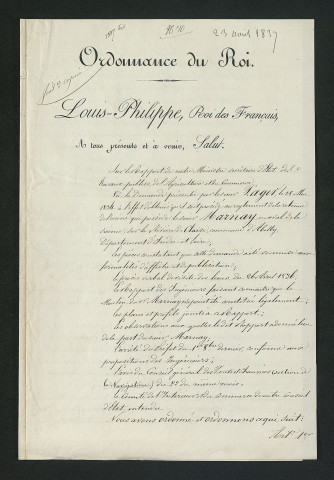 N° 10
23 août 1837
Ordonnance du Roi.
Louis-Philippe, Roi des Français,
A tous présents et à venir, Salut.
Sur le Rapport de notre Ministre secrétaire d'Etat des
travaux publics, de l'Agriculture et du Commerce;
Vu la demande présentée par le sieur Pages, le 28
1834 à l'effet d'obtenir qu'il soit procédé au règlement de la retenue
de l'usine que possède le sieur Marnay, en aval de la
sienne, sur la Rivière de Claise, commune d'Abilly,
département d'Indre et Loire;
Les pièces constatant que cette demande a été soumise aux
formalités d'affiches et de publication;
Le procès verbal de visite des lieux du 26 Avril 1836;
Le Rapport des Ingénieurs faisant connaître que le
Moulin du Sr Marnay n'a point été construit légalement;
Les plans et profils joints à ce Rapport;
Les observations auxquelles le dit Rapport a donné lieu
de la part du sieur Marnay;
L'arrêté du Préfet du 1er 8bre dernier, conforme aux
propositions des Ingénieurs;
L'avis du Conseil général des Ponts et chaussées (section de
la Navigation) du 22 du même mois;
Le Comité de l'Intérieur et du commerce de notre Conseil
d'Etat, entendu;
Nous avons ordonné et ordonnons ce qui suit:
Art. 1er